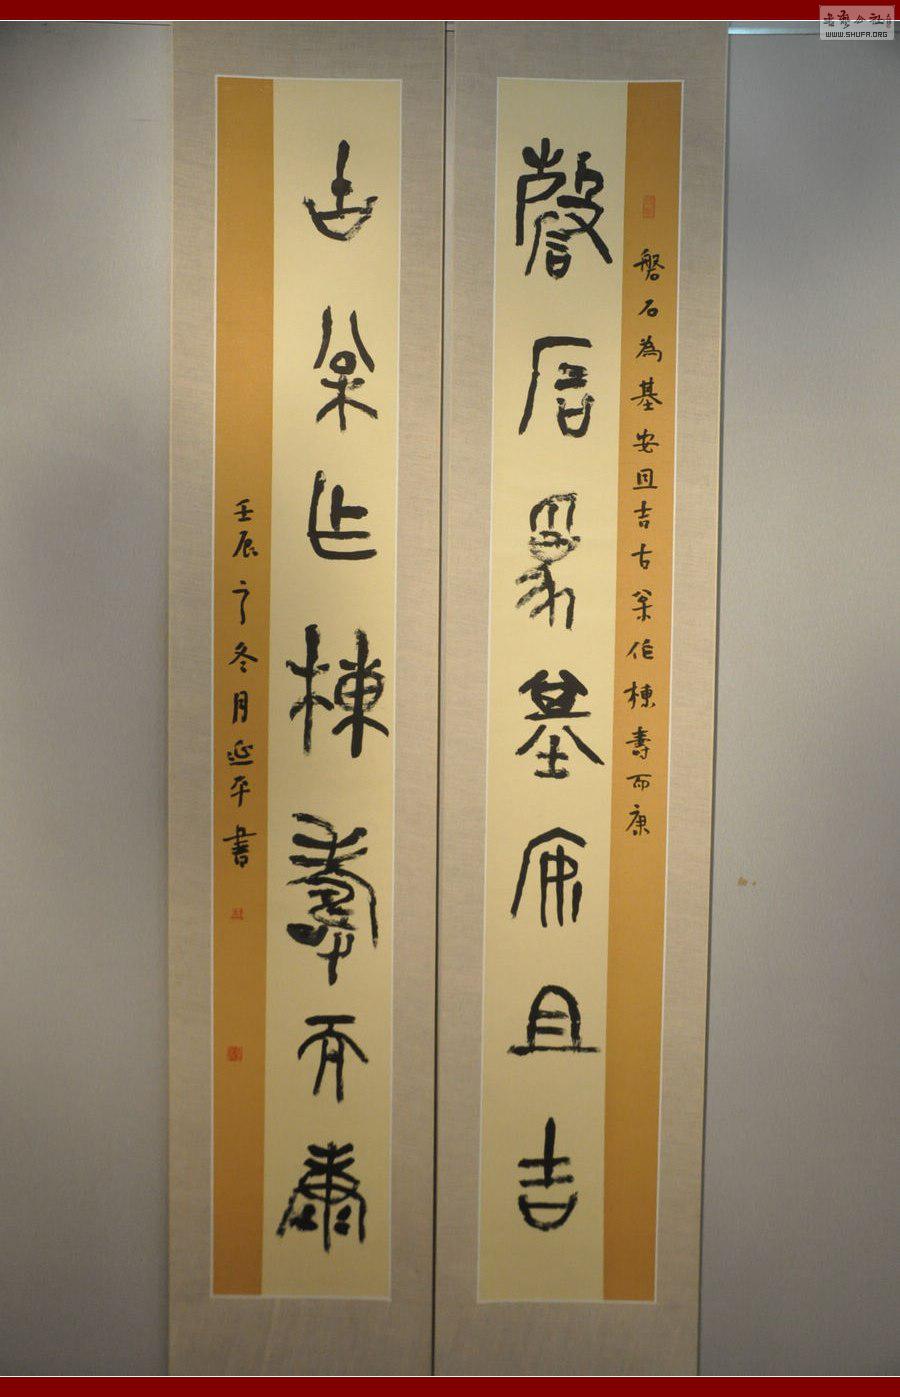 磐石為基安且吉
磐石為基安且吉古栄作棟壽而康
古栄作棟壽而康
壬辰之冬月延平書
WWW.SHUFA.ORG